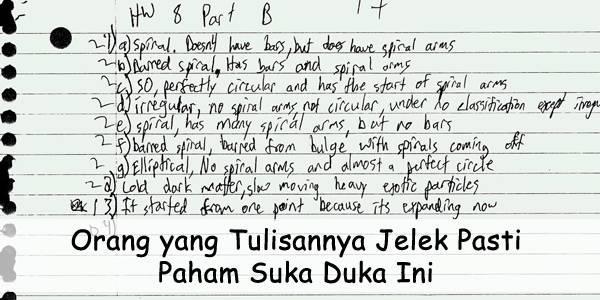 HW 8 Part B 17
21) a) Spiral. Doesn't have bars, but does have spiral arms
2 b) Barred spiral, Has bars and spiral arms
2 c) S0, perfectly circular and has the start of spiral arms
2 d) irregular, no spiral arms not circular, under no classification except irregu
2 e) spiral, has many spiral arms, but no bars
2 f) barred spiral, barred from bulge with spirals coming off
2 g) Elliptical, No spiral arms and almost a perfect circle
2 2) Cold dark matter, slow moving heavy exotic particles
13) It started from one point because its expanding now
Orang yang Tulisannya Jelek Pasti
Paham Suka Duka Ini